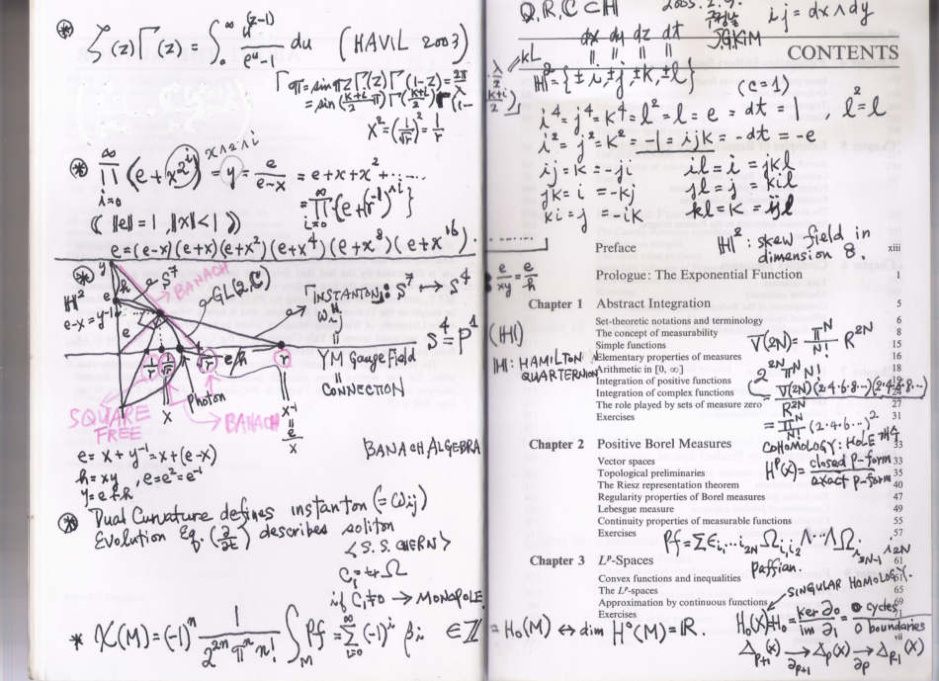 ζ(z)Γ(z) = ∫₀^∞ u^(z-1)/(e^u-1) du (HAVIL 2003)
X² = (1/√r)² = 1/r
∏_{i=0}^∞ (e + x^{2^i}) = y = e/(e-x) = e+x+x²+·····
(‖e‖=1, ‖x‖<1)
e=(e-x)(e+x)(e+x²)(e+x⁴)(e+x⁸)(e+x¹⁶)·
y
S⁷
BANACH
GL(2,C)
INSTANTON: S⁷ ↦ S⁴
H²
e-x=y⁻¹
S⁴=P¹
YM Gauge Field
CONNECTION
Photon
SQUARE FREE
BANACH
X
X⁻¹
e/x
e = x + y⁻¹ = x+(e-x)
h=xy, e=e²=e⁻¹
y=e+h
BANACH ALGEBRA
Dual Curvature defines instanton (=ωij)
Evolution Eq. (∂/∂t) describes soliton
<S.S. CHERN>
C₁=tr Ω
if C₁≠0 → MONOPOLE.
* X(M)=(-1)ⁿ 1/(2²ⁿ πⁿ n!) ∫_M Pf = Σ_{i=0}^∞ (-1)^i βi ∈ Z = H₀(M) ↔ dim H⁰(M)=R.
Q.R.C⊂H
ij=dx∧dy
JGKIM
dx dy dz dt
CONTENTS
H²={±i,±j,±k,±l}
(c=1)
i⁴=j⁴=k⁴=l²=l=e=dt=1, l²=l
i²=j²=k²=-1=ijk=-dt=-e
ij=k=-ji il=i=jkl
jk=i=-kj jl=j=kil
ki=j=-ik kl=k=ijl
H²: skew field in dimension 8.
Preface xiii
Prologue: The Exponential Function 1
e/xy = e/h
Chapter 1 Abstract Integration 5
Set-theoretic notations and terminology 6
The concept of measurability 8
Simple functions 15
Elementary properties of measures 16
Arithmetic in [0, ∞] 18
Integration of positive functions
Integration of complex functions
The role played by sets of measure zero 27
Exercises 31
(H)
H: HAMILTON QUARTERNION
V(2N)=πᴺ/N! R²ᴺ
Chapter 2 Positive Borel Measures 33
Vector spaces 33
Topological preliminaries 35
The Riesz representation theorem 40
Regularity properties of Borel measures 47
Lebesgue measure 49
Continuity properties of measurable functions 55
Exercises 57
COHOMOLOGY: HOLE
Hᴾ(X)=closed p-form/exact p-form
Paffian.
Chapter 3 Lᴾ-Spaces 61
Convex functions and inequalities
The Lᴾ-spaces 65
Approximation by continuous functions 69
Exercises
SINGULAR HOMOLOGY.
H₀(X)=H₀=ker ∂₀/im ∂₁ = 0 cycles/0 boundaries
Δp+1(X) →∂p+1 Δp(X) →∂p Δp-1(X)